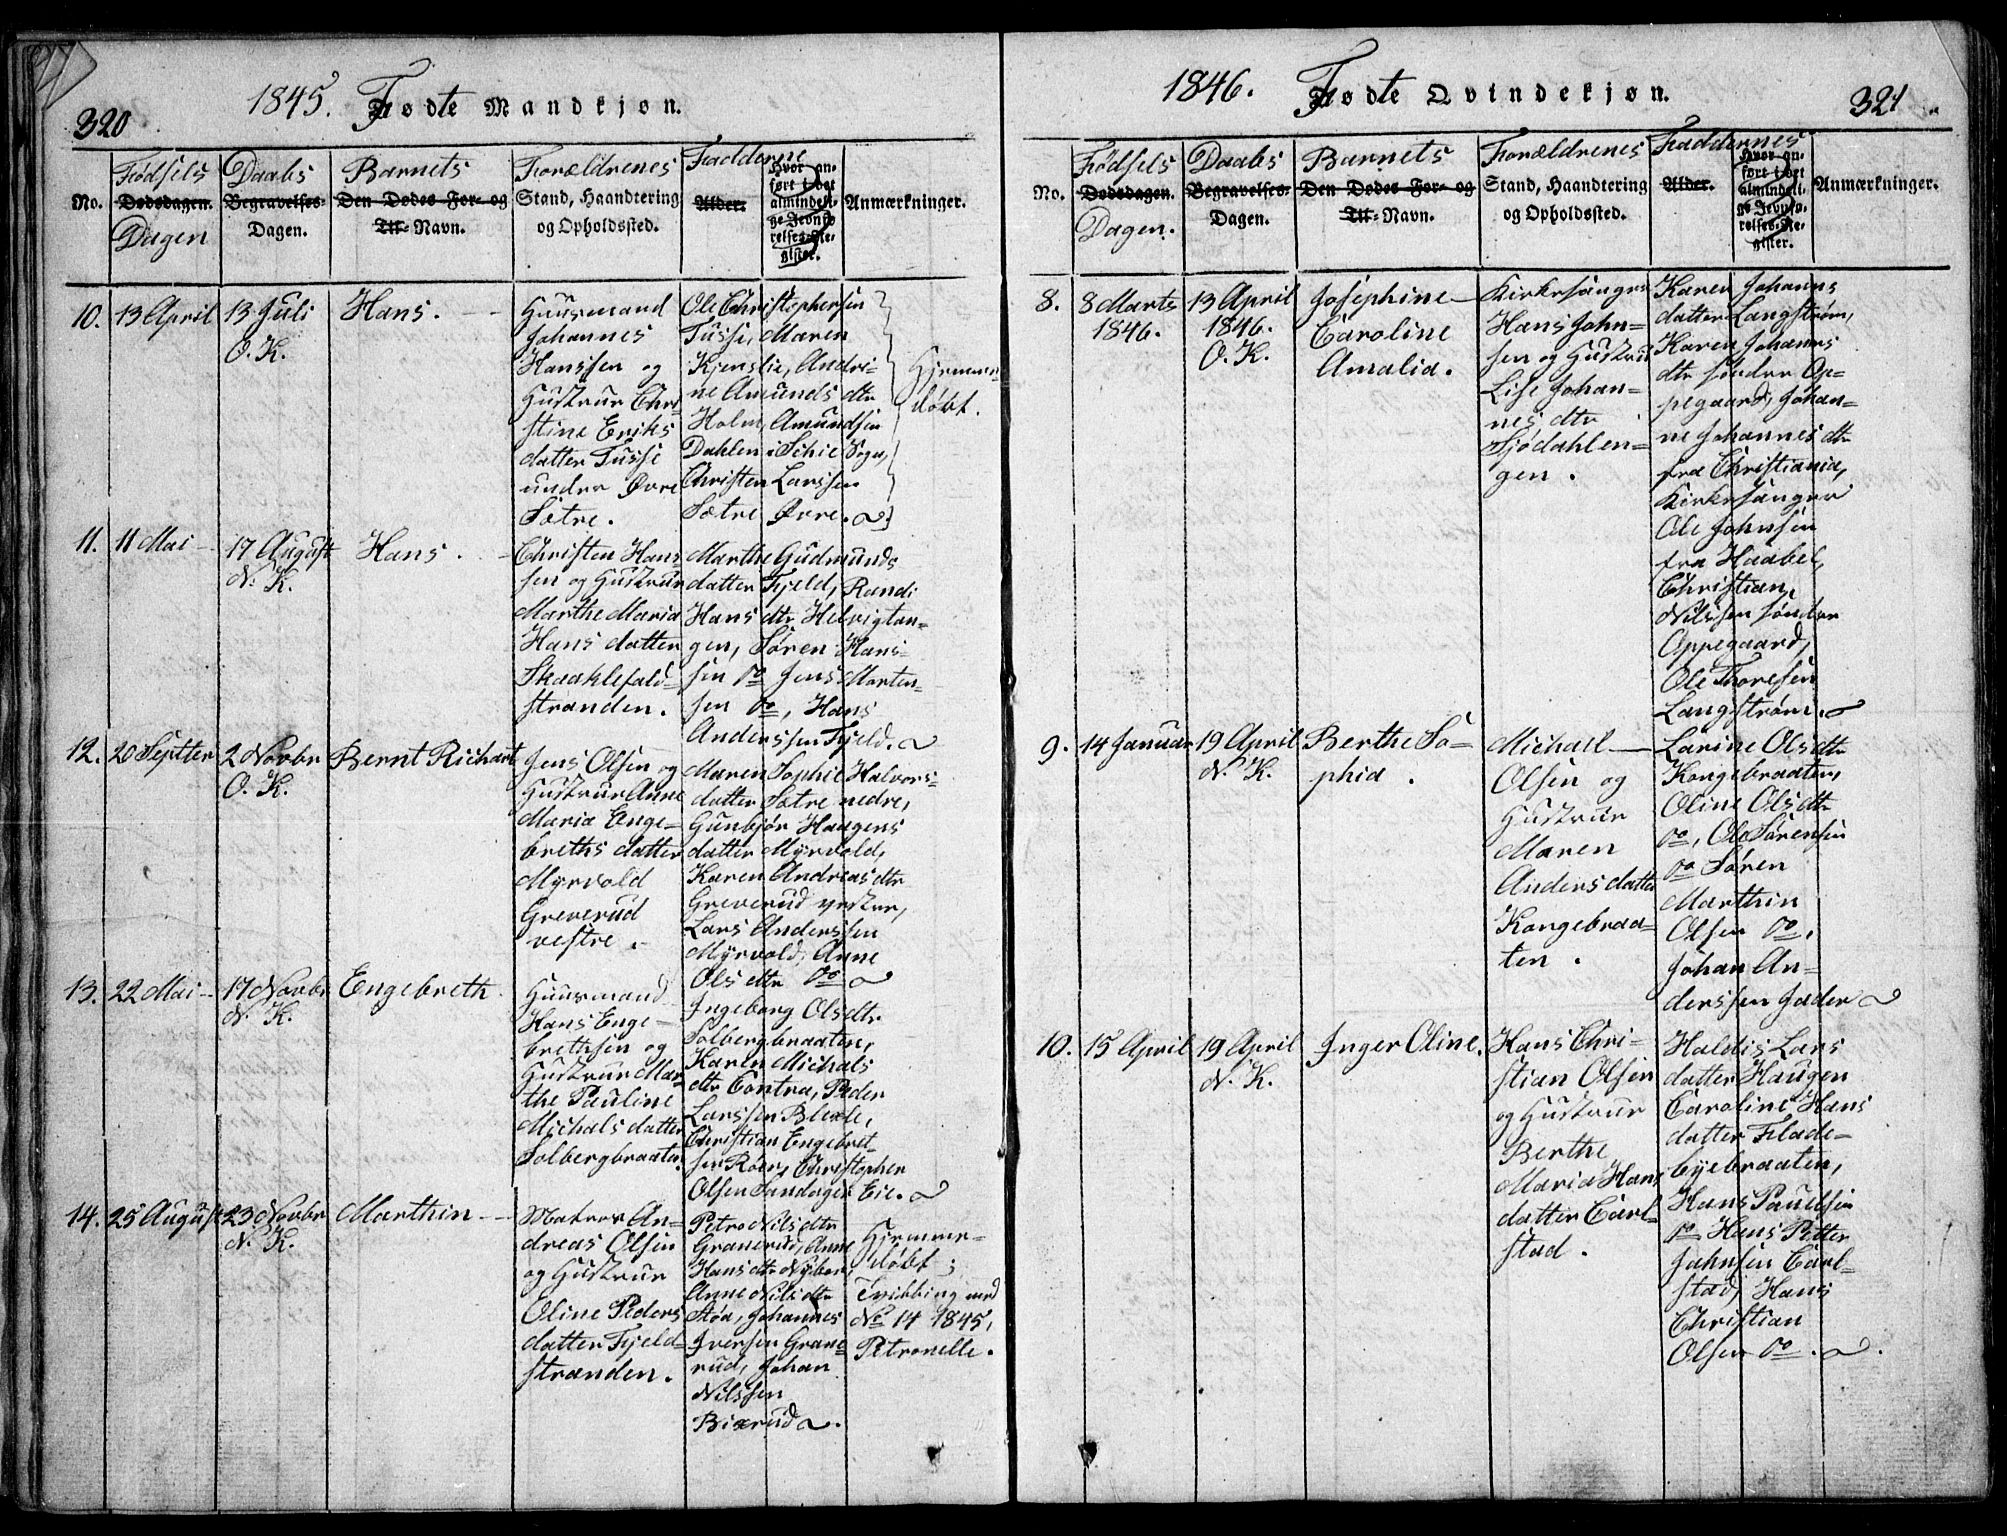 320
1845. Fødte Mandkjøn.
No.
Fødsels
Dødsdagen.
Dagen
Daabs
Begravelses-
Dagen.
Barnets
Den Dødes For- og
Til-Navn.
Forældrenes
Stand, Haandtering
og Opholdssted.
Fadderne
Alder.
Hvor an-
ført i det
almindeli-
ge Jevnfø-
relses-Re-
gister.
Anmærkninger.
10.
13 April
13 Juli
O. K.
Hans.
Huusmand
Johannes
Hanssen og
Hustrue Chri-
stine Eriks
datter Tusse
under Øvre
Sætre.
Ole Christophersen
Tusse, Maren
Kjenslie, Andri-
ne Amunds dtr
Holm, Amundsen
Dahlen i Schie Sogn,
Christen Larssen
Sætre Øvre.
Hjemme-
døbt.
11.
11 Mai
17 August
N. K.
Hans.
Christen Hans-
sen og Hustrue
Marthe Maria
Hans datter
Skaaklefald-
stranden.
Marthe Gudmunds
datter Fjeld, Randi
Hans dtr Helvigtan-
gen, Søren Hans-
sen do Jens Morten-
sen do, Hans
Anderssen Fjeld.
12.
20 Septter
2 Novbr
O. K.
Bernt Richart
Jens Olsen og
Hustrue Anne
Maria Enge-
breths datter
Myrvold
Greverud
vestre.
Maren Sophie Halvors-
datter Sætre nedre,
Gunbjør Haagens
datter Myrvold,
Karen Andreas dtr
Greverud vestre,
Lars Anderssen
Myrvold, Anne
Ols dtr do
13.
22 Mai
17 Novbr
N. K.
Engebreth
Huusmand
Hans Enge-
brethsen og
Hustrue Mar-
the Pauline
Michals datter
Solbergbraaten
Ingeborg Ols dtr
Solbergbraaten,
Karen Michals
dtr Contra, Peder
Larssen
Christian Engebret-
sen Røer, Christopher
Olsen Eie.
14.
25 August
23 Novbr
N. K.
Marthin
Matros An-
dreas Olsen
og Hustrue
Oline Peders
datter Fjeld-
stranden.
Petro Nils dtr
Granerud, Anne
Hans dtr
Anne Nils dtr
Støa, Johannes
Iversen Grane-
rud, Johan
Nilssen
Bixrud
Hjemme-
døbt;
Tvilling med
No 14 1845,
Petronelle.
1846. Fødte Qvindekjøn.
321
No.
Fødsels
Dødsdagen.
Dagen.
Daabs
Begravelses-
Dagen.
Barnets
Den Dødes For- og
Til-Navn.
Forældrenes
Stand, Haandtering
og Opholdssted.
Faddernes
Alder.
Hvor an-
ført i det
almindeli-
ge Jevnfø-
relses-Re-
gister.
Anmærkninger.
8.
8 Marts
1846.
13 April
1846.
O. K.
Josephine
Caroline
Amalia.
Kirkesanger
Hans John-
sen og Hustrue
Lise Johan-
nes dtr
Sjødahlen-
gen.
Karen Johanns
datter Langstrøm,
Karen Johannes
dtr søndre Op-
pegaard, Johan-
ne Johannes dtr
fra Christiania,
Kirkesanger
Ole Johnsen
fra Haabel,
Christian
Nilssen søndre
Oppegaard,
Ole Thoresen
Langstrøm.
9.
14 Januar
19 April
N. K.
Berthe So-
phia.
Michael
Olsen og
Hustrue
Maren
Anders datter
Kongebraa-
ten.
Larine Ols dtr
Kongebraaten,
Oline Ols dtr
do, Ole Sørensen
do Søren
Marthin
Olsen do,
Johan An-
derssen Jader
10.
15 April
19 April
N. K.
Inger Oline.
Hans Chri-
stian Olsen
og Hustrue
Berthe
Maria Hans
datter Carl-
stad.
Haldis Lars
datter Haugen
Caroline Hans
datter Flade-
byebraaten,
Hans Paulsen
do Hans Petter
Johnsen Carl-
stad, Hans
Christian
Olsen do.